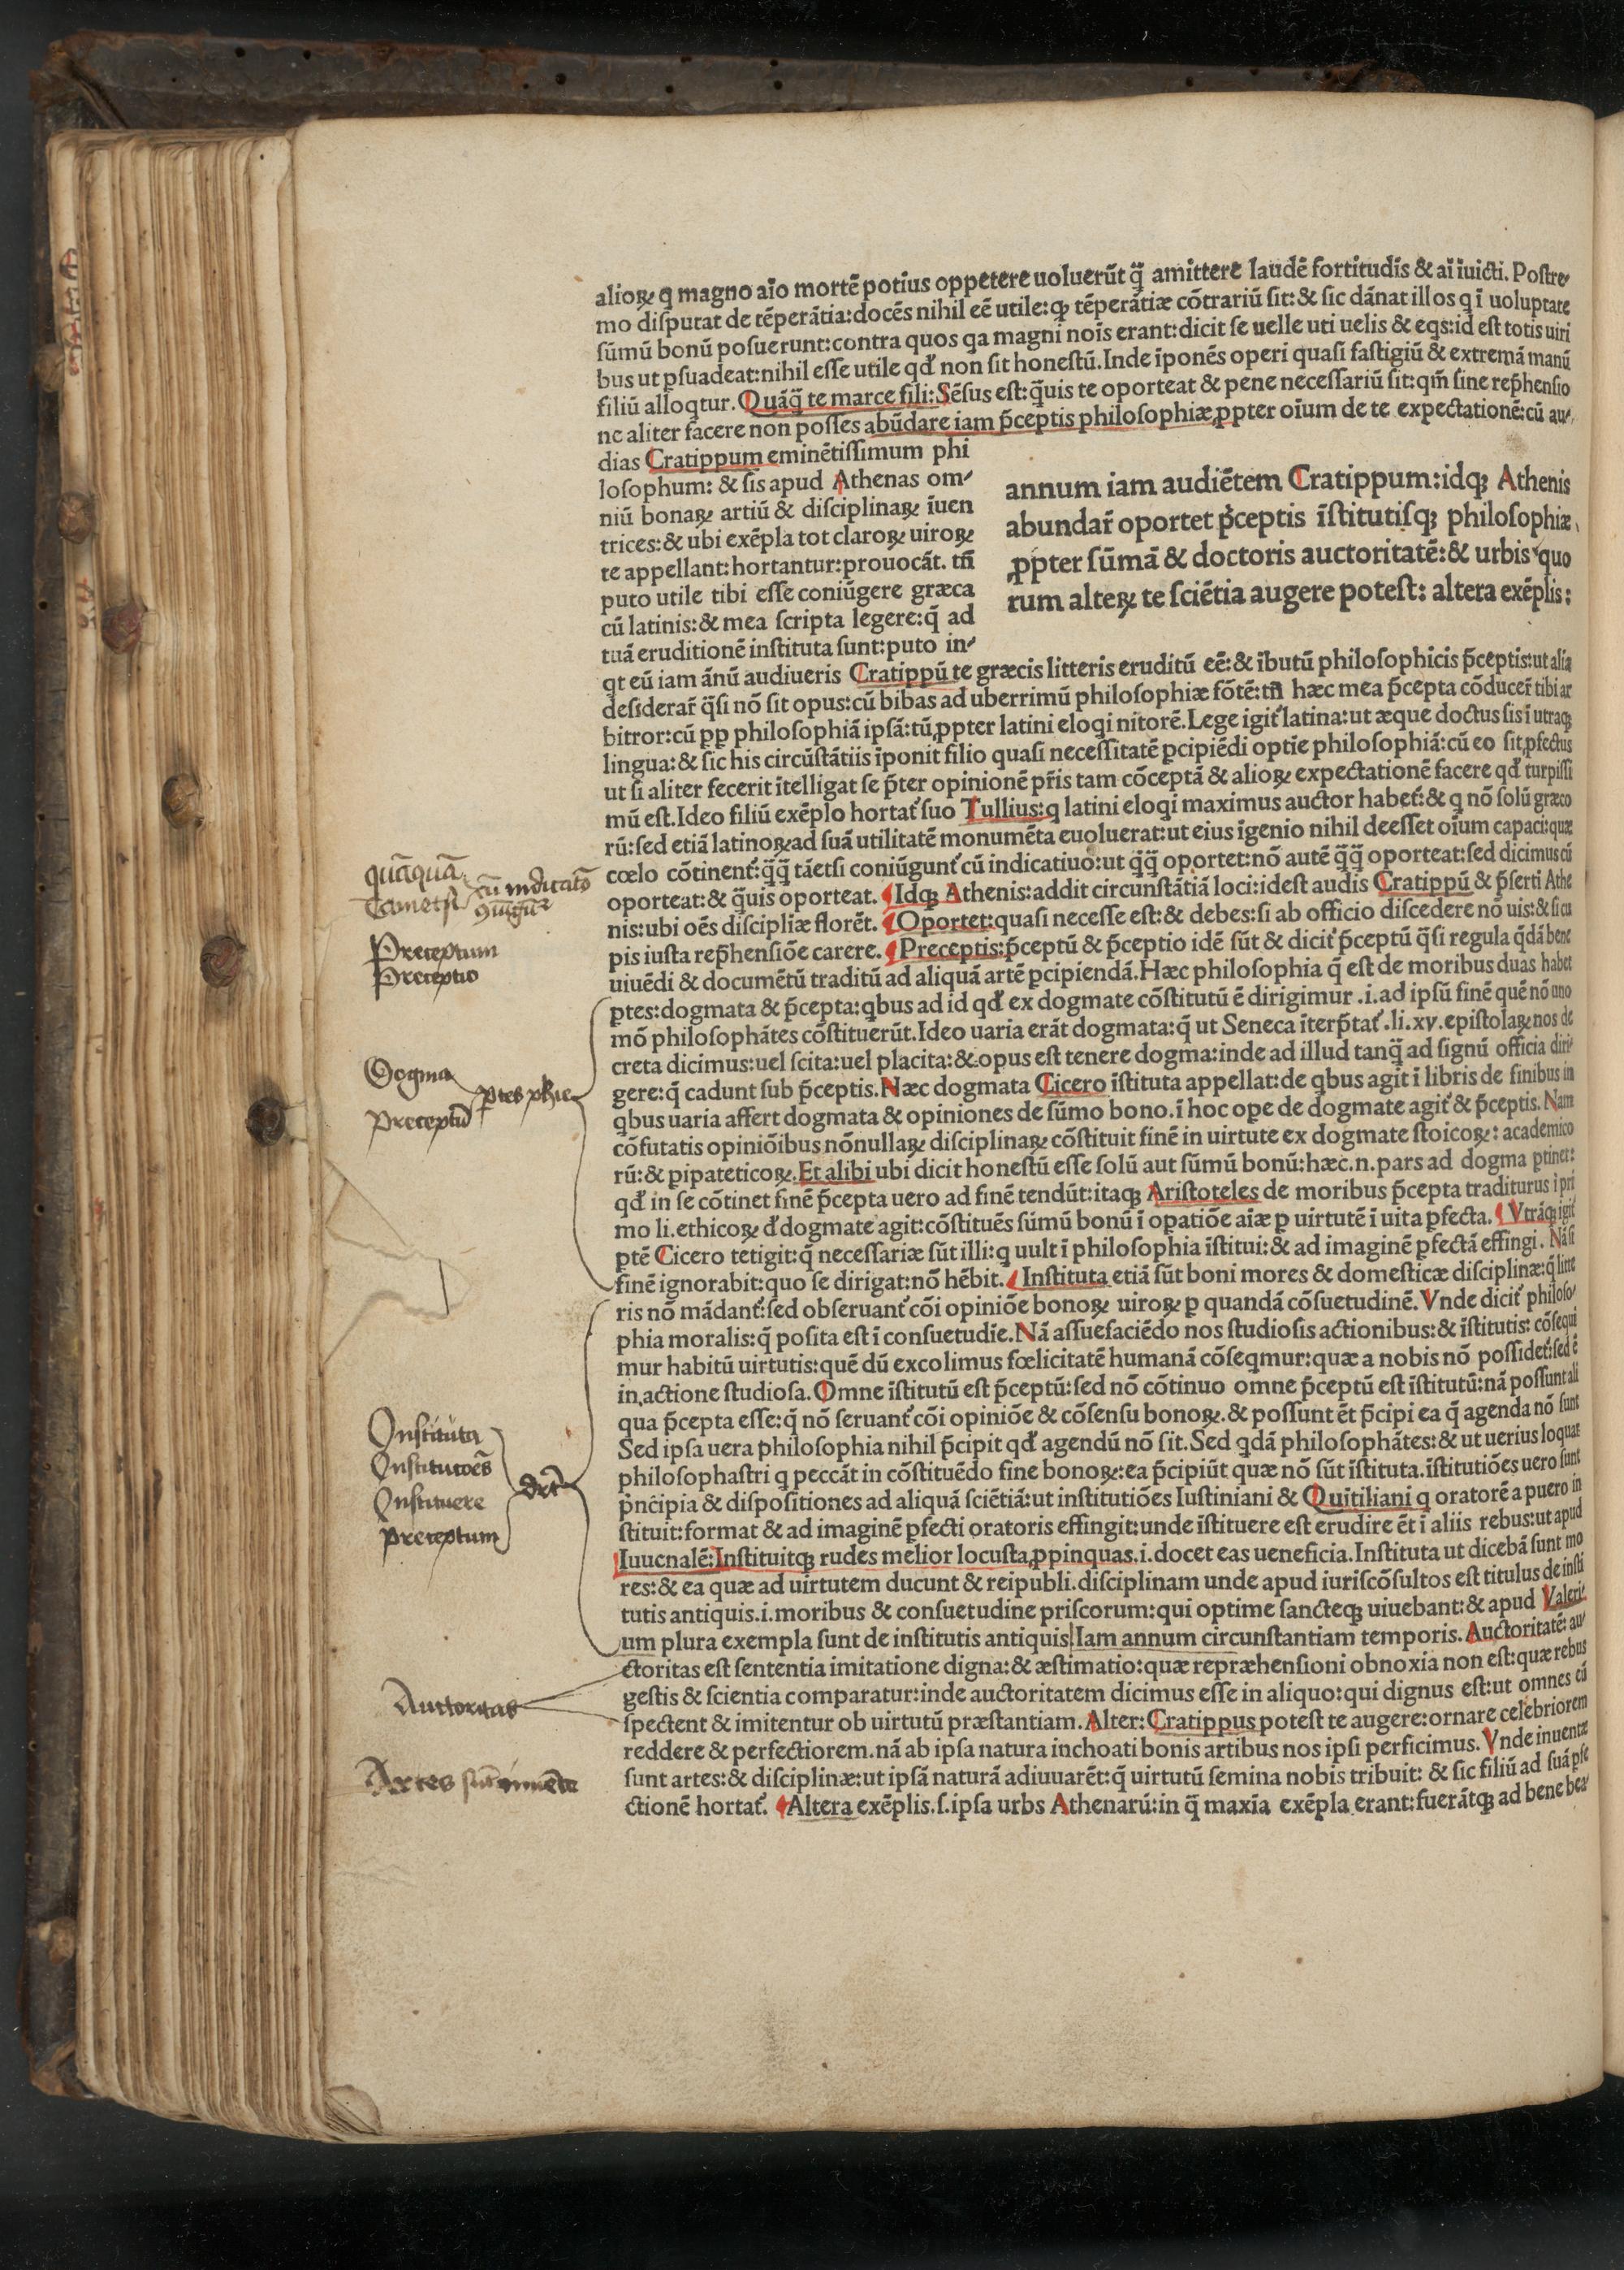 alioꝝ q magno aīo mortē potius oppetere uoluerūt q̄̄ amittere laudē fortitudīs & aī īuicti. Poſtre⸗
mo diſputat de tēperātia: docēs nihil eē utile: qꝫ tēperātiæ cōtrariū ſit: & ſic dānat illos q ī uoluptate
ſūmū bonū poſuerunt: contra quos qa magni noīs erant: dicit ſe uelle uti uelis & eqs: id eſt totis uiri
bus ut ꝑſuadeat: nihil eſſe utile qđ non ſit honeſtū. Inde īponēs operi quaſi faſtigiū & extremā manū
filiū alloqtur. Quāq̄̄ te marce fili: Sēſus eſt: q̄̄uis te oporteat & pene neceſſariū ſit: qm̄ ſine rep̄henſio
ne aliter facere non poſſes abūdare iam p̄ceptis philoſophiæ ꝓpter oīum de te expectationē: cū au⸗
dias Cratippum eminētiſſimum phi
loſophum: & ſis apud Athenas om⸗
niū bonaꝝ artiū & diſciplinaꝝ īuen
trices: & ubi exēpla tot claroꝝ uiroꝝ
te appellant: hortantur: prouocāt. tn̄
puto utile tibi eſſe coniūgere græca
cū latinis: & mea ſcripta legere: q̄ ad
tuā eruditionē inſtituta ſunt: puto in⸗
annum iam audiētem Cratippum: idqꝫ Athenis
abundar̄ oportet p̄ceptis īſtitutiſqꝫ philoſophiæ
ꝓpter ſūmā & doctoris auctoritatē: & urbis quo
rum alteꝝ te ſciētia augere poteſt: altera exēplis:
qt eū iam ānū audiueris Cratippū te græcis litteris eruditū eē: & ībutū philoſophicis p̄ceptis: ut alia
deſiderar̄ q̄ſi nō ſit opus: cū bibas ad uberrimū philoſophiæ fōtē: tn̄ hæc mea p̄cepta cōducer̄ tibi ar
bitror: cū ꝓp philoſophiā ipſā: tū ꝓpter latini eloqi nitorē. Lege igit̄ latina: ut æque doctus ſis ī utraqꝫ
lingua: & ſic his circūſtātiis īponit filio quaſi neceſſitatē ꝑcipiēdi optīe philoſophiā: cū eo ſit ꝓfectus
ut ſi aliter fecerit ītelligat ſe p̄ter opinionē pr̄is tam cōceptā & alioꝝ expectationē facere qđ turpiſſi
mū eſt. Ideo filiū exēplo hortat̄ ſuo Tullius: q latini eloqi maximus auctor habet̄: & q nō ſolū græco
rū: ſed etiā latinoꝝ ad ſuā utilitatē monumēta euoluerat: ut eius īgenio nihil deeſſet oīum capaci: quæ
cœlo cōtinent̄: q̄̄q̄̄ tāetſi coniūgunt̄ cū indicatiuo: ut q̄̄q̄̄ oportet: nō autē q̄̄q̄̄ oporteat: ſed dicimus cū
oporteat: & q̄̄uis oporteat. ¶Idqꝫ Athenis: addit circunſtātiā loci: ideſt audis Cratippū & p̄ſerti Athe
nis: ubi oēs diſcipliæ florēt. ¶Oportet: quaſi neceſſe eſt: & debes: ſi ab officio diſcedere nō uis: & ſi cu
pis iuſta rep̄henſiōe carere. ¶Preceptis: p̄ceptū & p̄ceptio idē ſūt & dicit̄ p̄ceptū q̄ſi regula q̄dā bene
uiuēdi & documētū traditū ad aliquā artē ꝑcipiendā. Hæc philoſophia q̄ eſt de moribus duas habet
ꝑtes: dogmata & p̄cepta: qbus ad id qđ ex dogmate cōſtitutū ē dirigimur .i. ad ipſū finē quē nō uno
mō philoſophātes cōſtituerūt. Ideo uaria erāt dogmata: q̄ ut Seneca īterp̄tat̄ .li. xv. epiſtolaꝝ nos de
creta dicimus: uel ſcita: uel placita: & opus eſt tenere dogma: inde ad illud tanq̄̄ ad ſignū officia diri⸗
gere: q̄ cadunt ſub p̄ceptis. Næc dogmata Cicero īſtituta appellat: de qbus agit ī libris de finibus in
qbus uaria affert dogmata & opiniones de ſūmo bono. ī hoc oꝑe de dogmate agit̄ & p̄ceptis. Nam
cōfutatis opiniōibus nōnullaꝝ diſciplinaꝝ cōſtituit finē in uirtute ex dogmate ſtoicoꝝ: academico
rū: & ꝑipateticoꝝ. Et alibi ubi dicit honeſtū eſſe ſolū aut ſūmū bonū: hæc .n. pars ad dogma ꝑtinet:
qđ in ſe cōtinet finē p̄cepta uero ad finē tendūt: itaqꝫ Ariſtoteles de moribus p̄cepta traditurus ī pri
mo li. ethicoꝝ đ dogmate agit: cōſtituēs ſūmū bonū ī opatiōe aīæ ꝑ uirtutē ī uita ꝑfecta. ¶Vtrāqꝫ igit̄
ꝑtē Cicero tetigit: q̄ neceſſariæ ſūt illi: q uult ī philoſophia īſtitui: & ad imaginē ꝑfectā effingi. Nā ſi
finē ignorabit: quo ſe dirigat: nō hēbit. ¶Inſtituta etiā ſūt boni mores & domeſticæ diſciplinæ: q̄ litte
ris nō mādant̄: ſed obſeruant̄ cōi opiniōe bonoꝝ uiroꝝ ꝑ quandā cōſuetudinē. Vnde dicit̄ philoſo⸗
phia moralis: q̄ poſita eſt ī conſuetudīe. Nā aſſuefaciēdo nos ſtudioſis actionibus: & īſtitutis: cōſequi
mur habitū uirtutis: quē dū excolimus fœlicitatē humanā cōſeqmur: quæ a nobis nō poſſidet̄: ſed ē
in actione ſtudioſa. Omne īſtitutū eſt p̄ceptū: ſed nō cōtinuo omne p̄ceptū eſt īſtitutū: nā poſſunt ali
qua p̄cepta eſſe: q̄ nō ſeruant̄ cōi opiniōe & cōſenſu bonoꝝ. & poſſunt ēt p̄cipi ea q̄ agenda nō ſunt
Sed ipſa uera philoſophia nihil p̄cipit qđ agendū nō ſit. Sed qdā philoſophātes: & ut uerius loquar
philoſophaſtri q peccāt in cōſtituēdo fine bonoꝝ: ea p̄cipiūt quæ nō ſūt īſtituta. īſtitutiōes uero ſunt
p̄ncipia & diſpoſitiones ad aliquā ſciētiā: ut inſtitutiōes Iuſtiniani & Quītiliani q oratorē a puero in
ſtituit: format & ad imaginē ꝑfecti oratoris effingit: unde īſtituere eſt erudire ēt ī aliis rebus: ut apud
Iuuenalē: Inſtituitqꝫ rudes melior locuſta ꝓpinquas .i. docet eas ueneficia. Inſtituta ut dicebā ſunt mo
res: & ea quæ ad uirtutem ducunt & reipubli. diſciplinam unde apud iuriſcōſultos eſt titulus de inſti
tutis antiquis .i. moribus & conſuetudine priſcorum: qui optime ſancteqꝫ uiuebant: & apud Valeri⸗
um plura exempla ſunt de inſtitutis antiquis| Iam annum circunſtantiam temporis. Auctoritatē: au⸗
ctoritas eſt ſententia imitatione digna: & æſtimatio: quæ repræhenſioni obnoxia non eſt: quæ rebus
geſtis & ſcientia comparatur: inde auctoritatem dicimus eſſe in aliquo: qui dignus eſt: ut omnes eū
ſpectent & imitentur ob uirtutū præſtantiam. Alter: Cratippus poteſt te augere: ornare celebriorem
reddere & perfectiorem. nā ab ipſa natura inchoati bonis artibus nos ipſi perficimus. Vnde inuentæ
ſunt artes: & diſciplinæ: ut ipſā naturā adiuuarēt: q̄ uirtutū ſemina nobis tribuit: & ſic filiū ad ſuā ꝑfe
ctionē hortat̄. ¶Altera exēplis .ſ. ipſa urbs Athenarū: in q̄ maxīa exēpla erant: fuerātqꝫ ad bene bea⸗
quāquā
Tametſi
cū indicatō
ↄiūgūr
Preceptum
Preceptio
Dogma
Preceptū
ꝑtes phie
Inſtituta
Inſtitutōes
Inſtituere
Preceptum
Auctoritas
Artes ſūt inuēte